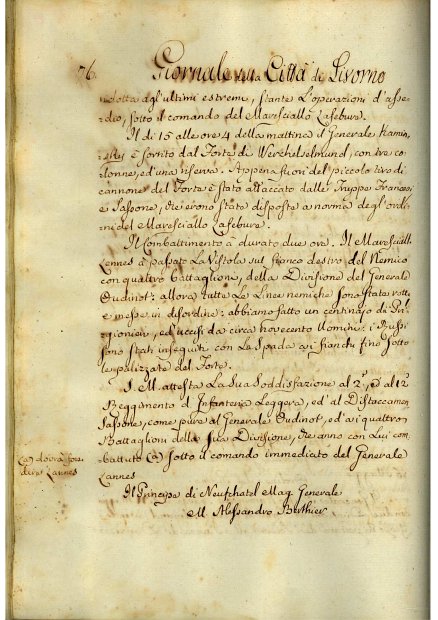 76.
Giornale della Città di Livorno
ridotta agl'ultimi estremi, stante L'operazioni d'asse=
dio, sotto il comando del Maresciallo Lasebure.
Il di 15 alle ore 4 della mattina il Generale Kamin,
è sortito dal Forte di Weichselmund, con tre co=
lonne, ed una riserva. Appena fuori del piccolo tiro di
cannone del Forte è stato attaccato dalle Truppe Francesi
e Sassone, che erono state disposte a norma degl'ordi=
ni del Maresciallo Lasebure.
Il Combattimento à durato due ore. Il Maresciall
Lannes à passato La Vistola sul fianco destro del Nemico
con quattro battaglione, della Divisione del Generale
Oudinot: allora tutte Le Linee nemiche sono state rotte
e messe in disordine: abbiamo fatto un centinajo di Pri=
gionieri, ed uccisi da circa novecento Uomini: i Russi
sono stati inseguiti con La Spada ai fianchi fino sotto
le palizzate del Forte.
S. M. attesta La Sua Soddisfazione al 2°, e al 12°
Reggimento d'Infanteria Leggera, ed'al Distaccamen
Sassone, come pure al Generale Oudinot, ed'ai quattro
Battaglioni della Sua Divisione, che anno con Lui com=
battuto (a) sotto il comando immediato del Generale
Lannes
(a) dovrà
dire Lannes
Il Principe di Neufchatel Mag. Generale
M. Alessandro Berthier